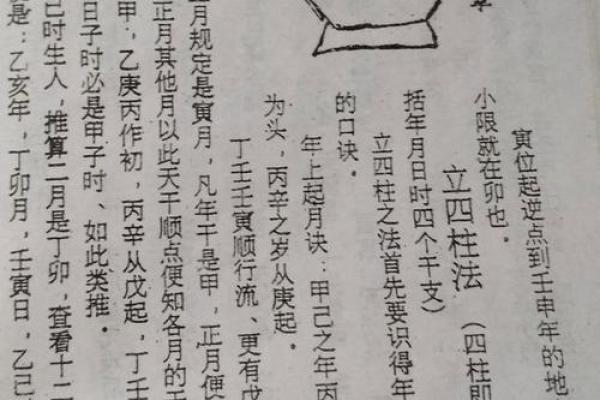 章
寅位起逆点到壬申年的地
小限就在卯也。
立四柱法（四柱即
括年月日时四个干支）
立四柱之法首先要识得年
的口诀。
年上起月诀：甲己之年丙
为头，丙辛之岁从庚起。
丁壬壬寅顺行流、更有戊
月规定是寅月，凡年干是甲，正月便
正月其他月以此天干顺点便知各月的干
甲，乙庚丙作初，丙辛从戊起，丁壬
日子时必是甲子时、如此类推。
巳时生人，推算二月是丁卯，查看十二
是：乙亥年，丁卯月，壬寅日，乙巳